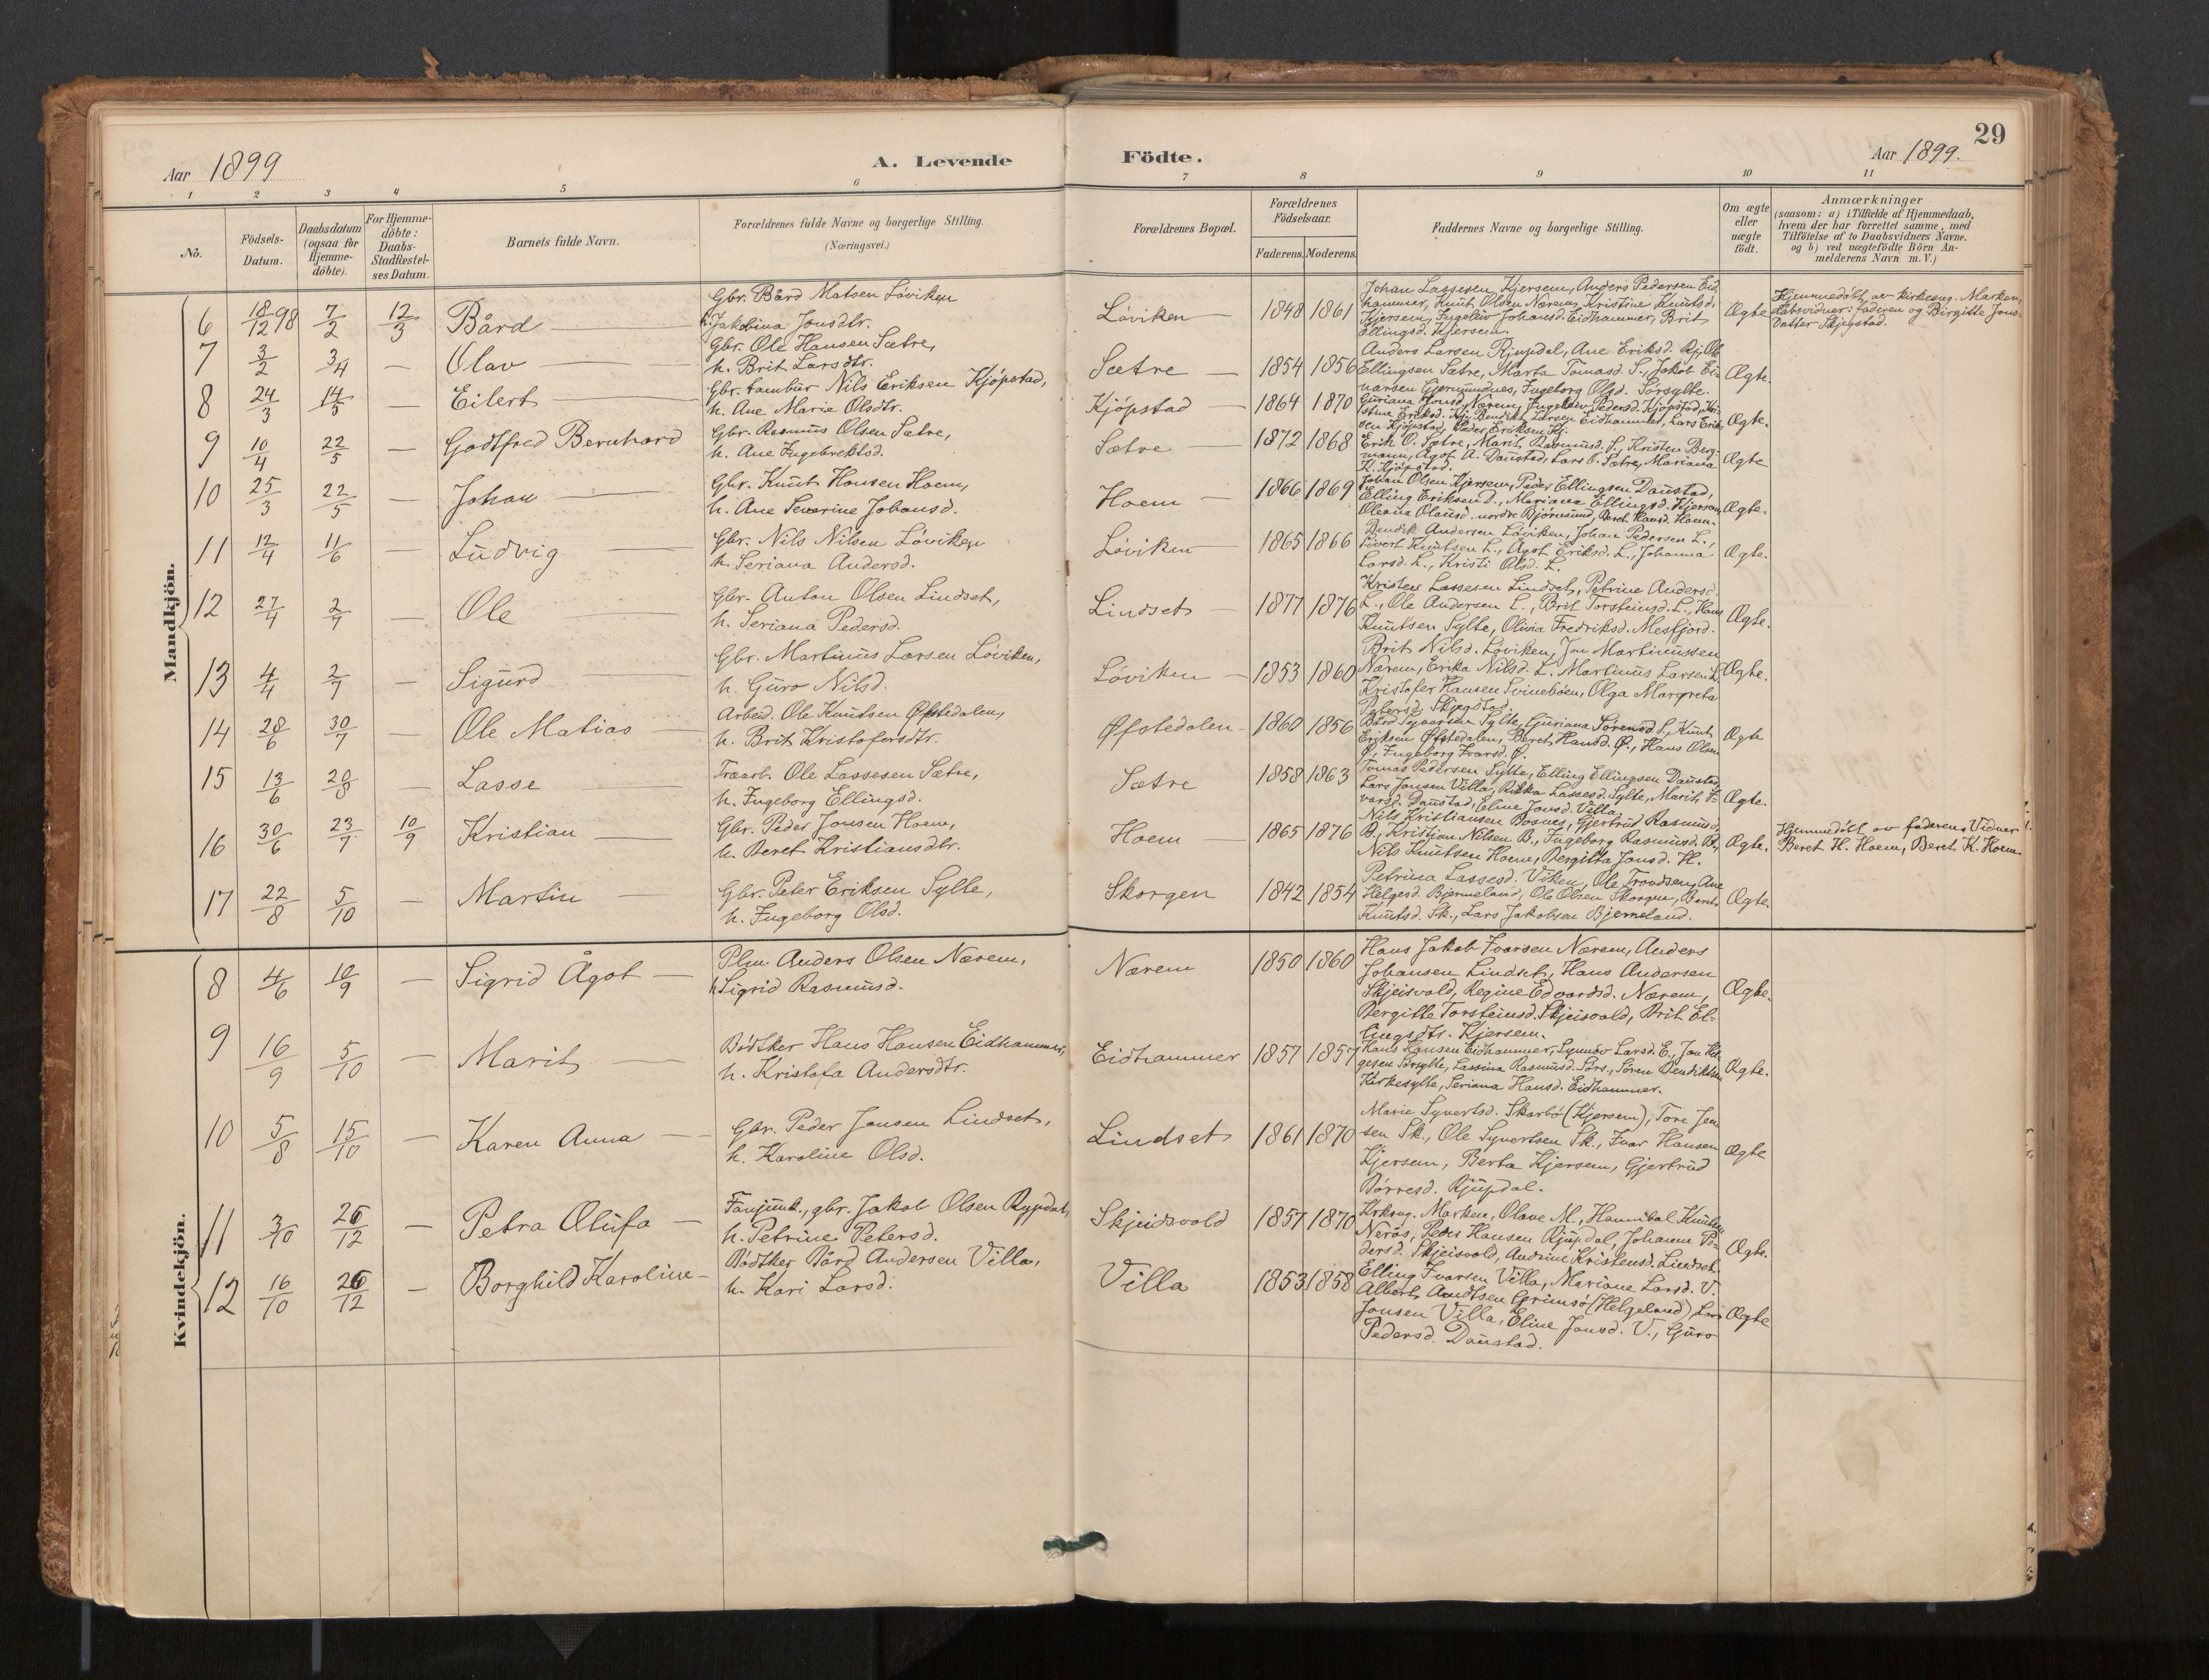 29
Aar 1899
A. Levende Födte.
Aar 1899.
1 2 3 4 5 6 7 8 9 10 11
No.
Födsels-Datum.
Daabsdatum (ogsaa for Hjemme-döbte).
For Hjemme-döbte: Daabs-Stadfæstel-ses Datum.
Barnets fulde Navn.
Forældrenes fulde Navne og borgerlige Stilling.
(Næringsvei.)
Forældrenes Bopæl.
Forældrenes Födselsaar.
Faderens. Moderens.
Faddernes Navne og borgerlige Stilling.
Om ægte eller uægte födt.
Anmærkninger
(saasom: a) i Tilfælde af Hjemmedaab,
hvem der har forrettet samme, med
Tilföielse af to Daabsvidners Navne.
og b) ved uægtefödte Börn An-
melderens Navn m. V.)
Mandkjön.
6 18/12 98 7/2 12/3 Bård
Gbr. Bård Matsen Løviken
h. Jakobina Jonsdtr.
Løviken 1848 1861
Johan Lassesen Kjersem, Anders Pedersen Eid-
hammer, Knut Olsen Nærem, Kristine Knutsd.
Kjersem, Ingeløv Johansd. Eidhammer, Brit
Ellingsd. Kjersem.
Ægte
Hjemmedøbt av kirkesng. Marken,
dabsvidner: faderen og Birgitte Jons-
datter Skjegstad.
7 3/2 3/4 — Olav
Gbr. Ole Hansen Sætre,
h. Brit Larsdtr.
Sætre 1854 1856
Anders Larsen Rjupdal, Ane Eriksd. Rj., Ole
Ellingsen Sætre, Marta Tomasd. S., Jakob Ei-
narsen Gjermundnes, Ingeborg Olsd. Sørsylte.
Ægte.
8 24/3 14/5 — Eilert
Gbr. tambur Nils Eriksen Kjøpstad,
h. Ane Marie Olsdtr.
Kjøpstad 1864 1870
Guriana Jonsd. Nærem, Ingeborg Pedersd. Kjøpstad, Kri-
stine Eriksd. Kj., Bendik Larsen Eidhammer, Lars Erik-
sen Kjøpstad, Peder Eriksen Kj.
Ægte.
9 10/4 22/5 — Godtfred Bernhard
Gbr. Rasmus Olsen Sætre,
h. Ane Ingebrektsd.
Sætre 1872 1868
Erik O. Sætre, Marit Rasmusd. S., Kristen Berg-
mann, Agot A. Daustad, Lars O. Sætre, Mariana
K. Kjøpstad.
Ægte
10 25/3 22/5 — Johan
Gbr. Knut Hansen Hoem,
h. Ane Severine Johansd.
Hoem 1866 1869
Johan Olsen Kjersem, Peder Ellingsen Daustad,
Elling Eriksen D., Mariana Ellingsd. Kjersem,
Oleana Olausd. nordre Bjørnsund, Beret Hansd. Hoem.
Ægte.
11 12/4 11/6 — Ludvig
Gbr. Nils Nilsen Løviken
h. Seriana Andersd.
Løviken 1865 1866
Bendik Andersen Løviken, Johan Pedersen L.,
Sivert Knutsen L., Agot Eriksd. L., Johanna
Larsd. L., Kristi Olsd. L.
Ægte.
12 27/4 2/7 — Ole
Gbr. Anton Olsen Lindset,
h. Seriana Pedersd.
Lindset 1877 1876
Kristen Lassesen Lindset, Petrine Andersd.
L., Ole Andersen L., Brit Torsteinsd. L., Hans
Knutsen Sylte, Olivia Fredriksd. Mesfjord.
Ægte.
13 4/4 2/7 — Sigurd
Gbr. Martinus Larsen Løviken,
h. Guro Nilsd.
Løviken 1853 1860
Brit Nilsd. Løviken, Jon Martinussen
Nærem, Erika Nilsd. L. Martinus Larsen L.
Kristofer Hansen Svinebøen, Olga Margreta
Petersd. Skjegstad.
Ægte.
14 28/6 30/7 — Ole Matias
Arbeid. Ole Knutsen Øfstedalen,
h. Brit Kristofersdtr.
Øfstedalen 1860 1856
Bård Syversen Sylte, Guriana Sørensd. S., Knut
Eriksen Øfstedalen, Beret Hansd. Ø., Hans Olsen
Ø., Ingeborg Ivarsd. Ø.
Ægte
15 13/6 20/8 — Lasse
Træarb. Ole Lassesen Sætre,
h. Ingeborg Ellingsd.
Sætre 1858 1863
Tomas Pedersen Sylte, Elling Ellingsen Daustad,
Lars Jonsen Villa, Rikka Lassesd. Sylte, Marit I-
varsd. Daustad, Eline Jonsd. Villa.
Ægte.
16 30/6 23/7 10/9 Kristian
Gbr. Peder Jonsen Hoem,
h. Beret Kristiansdtr.
Hoem 1865 1876
Nils Kristiansen Bosnes, Gjertrud Rasmusd.
B., Kristian Nilsen B., Ingeborg Rasmusd. B.,
Nils Knutsen Hoem, Bergitta Jonsd. H.
Ægte.
Hjemmedøbt av faderen. Vidner
Beret H. Hoem, Beret K. Hoem.
17 22/8 5/10 — Martin
Gbr. Peter Eriksen Sylte,
h. Ingeborg Olsd.
Skorgen 1842 1854
Petrina Lassesd. Viken, Ole Trondsen, Ane
Helgesd. Bjermeland, Ole Olsen Skorgen, Beret
Knutsd. Sk., Lars Jakobsen Bjermeland.
Ægte.
Kvindekjön.
8 4/6 10/9 — Sigrid Ågot
Plm Anders Olsen Nærem,
h. Sigrid Rasmusd.
Nærem 1850 1860
Hans Jakob Ivarsen Nærem, Anders
Johansen Lindset, Hans Andersen
Skjeisvold, Regine Edvardsd. Nærem,
Bergitte Torsteinsd. Skjeisvold, Brit El-
lingsdtr. Kjersem.
Ægte.
9 16/9 5/10 — Marit
Bødtker Hans Hansen Eidhammer,
h. Kristofa Andersdtr.
Eidhammer 1857 1857
Hans Hansen Eidhammer, Synnøv Larsd. E., Jon Hel-
gesen Sørsylte, Lassina Rasmusd. Sørs., Søren Bendiktsen
Kirkesylte, Seriana Hansd. Eidhammer.
Ægte.
10 5/8 15/10 — Karen Anna
Gbr. Peder Jonsen Lindset,
h. Karoline Olsd.
Lindset 1861 1870
Marie Syvertsd. Skarbø (Kjersem), Tore Jen-
sen Sk., Ole Syvertsen Sk., Ivar Hansen
Kjersem, Berta Kjersem, Gjertrud
Børresd. Rjupdal.
Ægte
11 3/10 26/12 — Petra Olufa
Fanjunk., gbr. Jakob Olsen Rypdal,
h. Petrine Petersd.
Skjeidsvold 1857 1870
Krksng. Marken, Olave M., Hannibal Knutsen
Nerøs, Peder Hansen Rjupdal, Johanna Pe-
dersd. Skjeisvold, Andrine Kristensd. Lindset.
Ægte.
12 16/10 26/12 — Borghild Karoline
Bødtker Bård Andersen Villa,
h. Kari Larsd.
Villa 1853 1858
Elling Ivarsen Villa, Mariane Larsd. V.
Albert Arndtsen Grimsø (Helgeland), Lars
Jonsen Villa, Eline Jonsd. V., Guro
Pedersd. Daustad.
Ægte